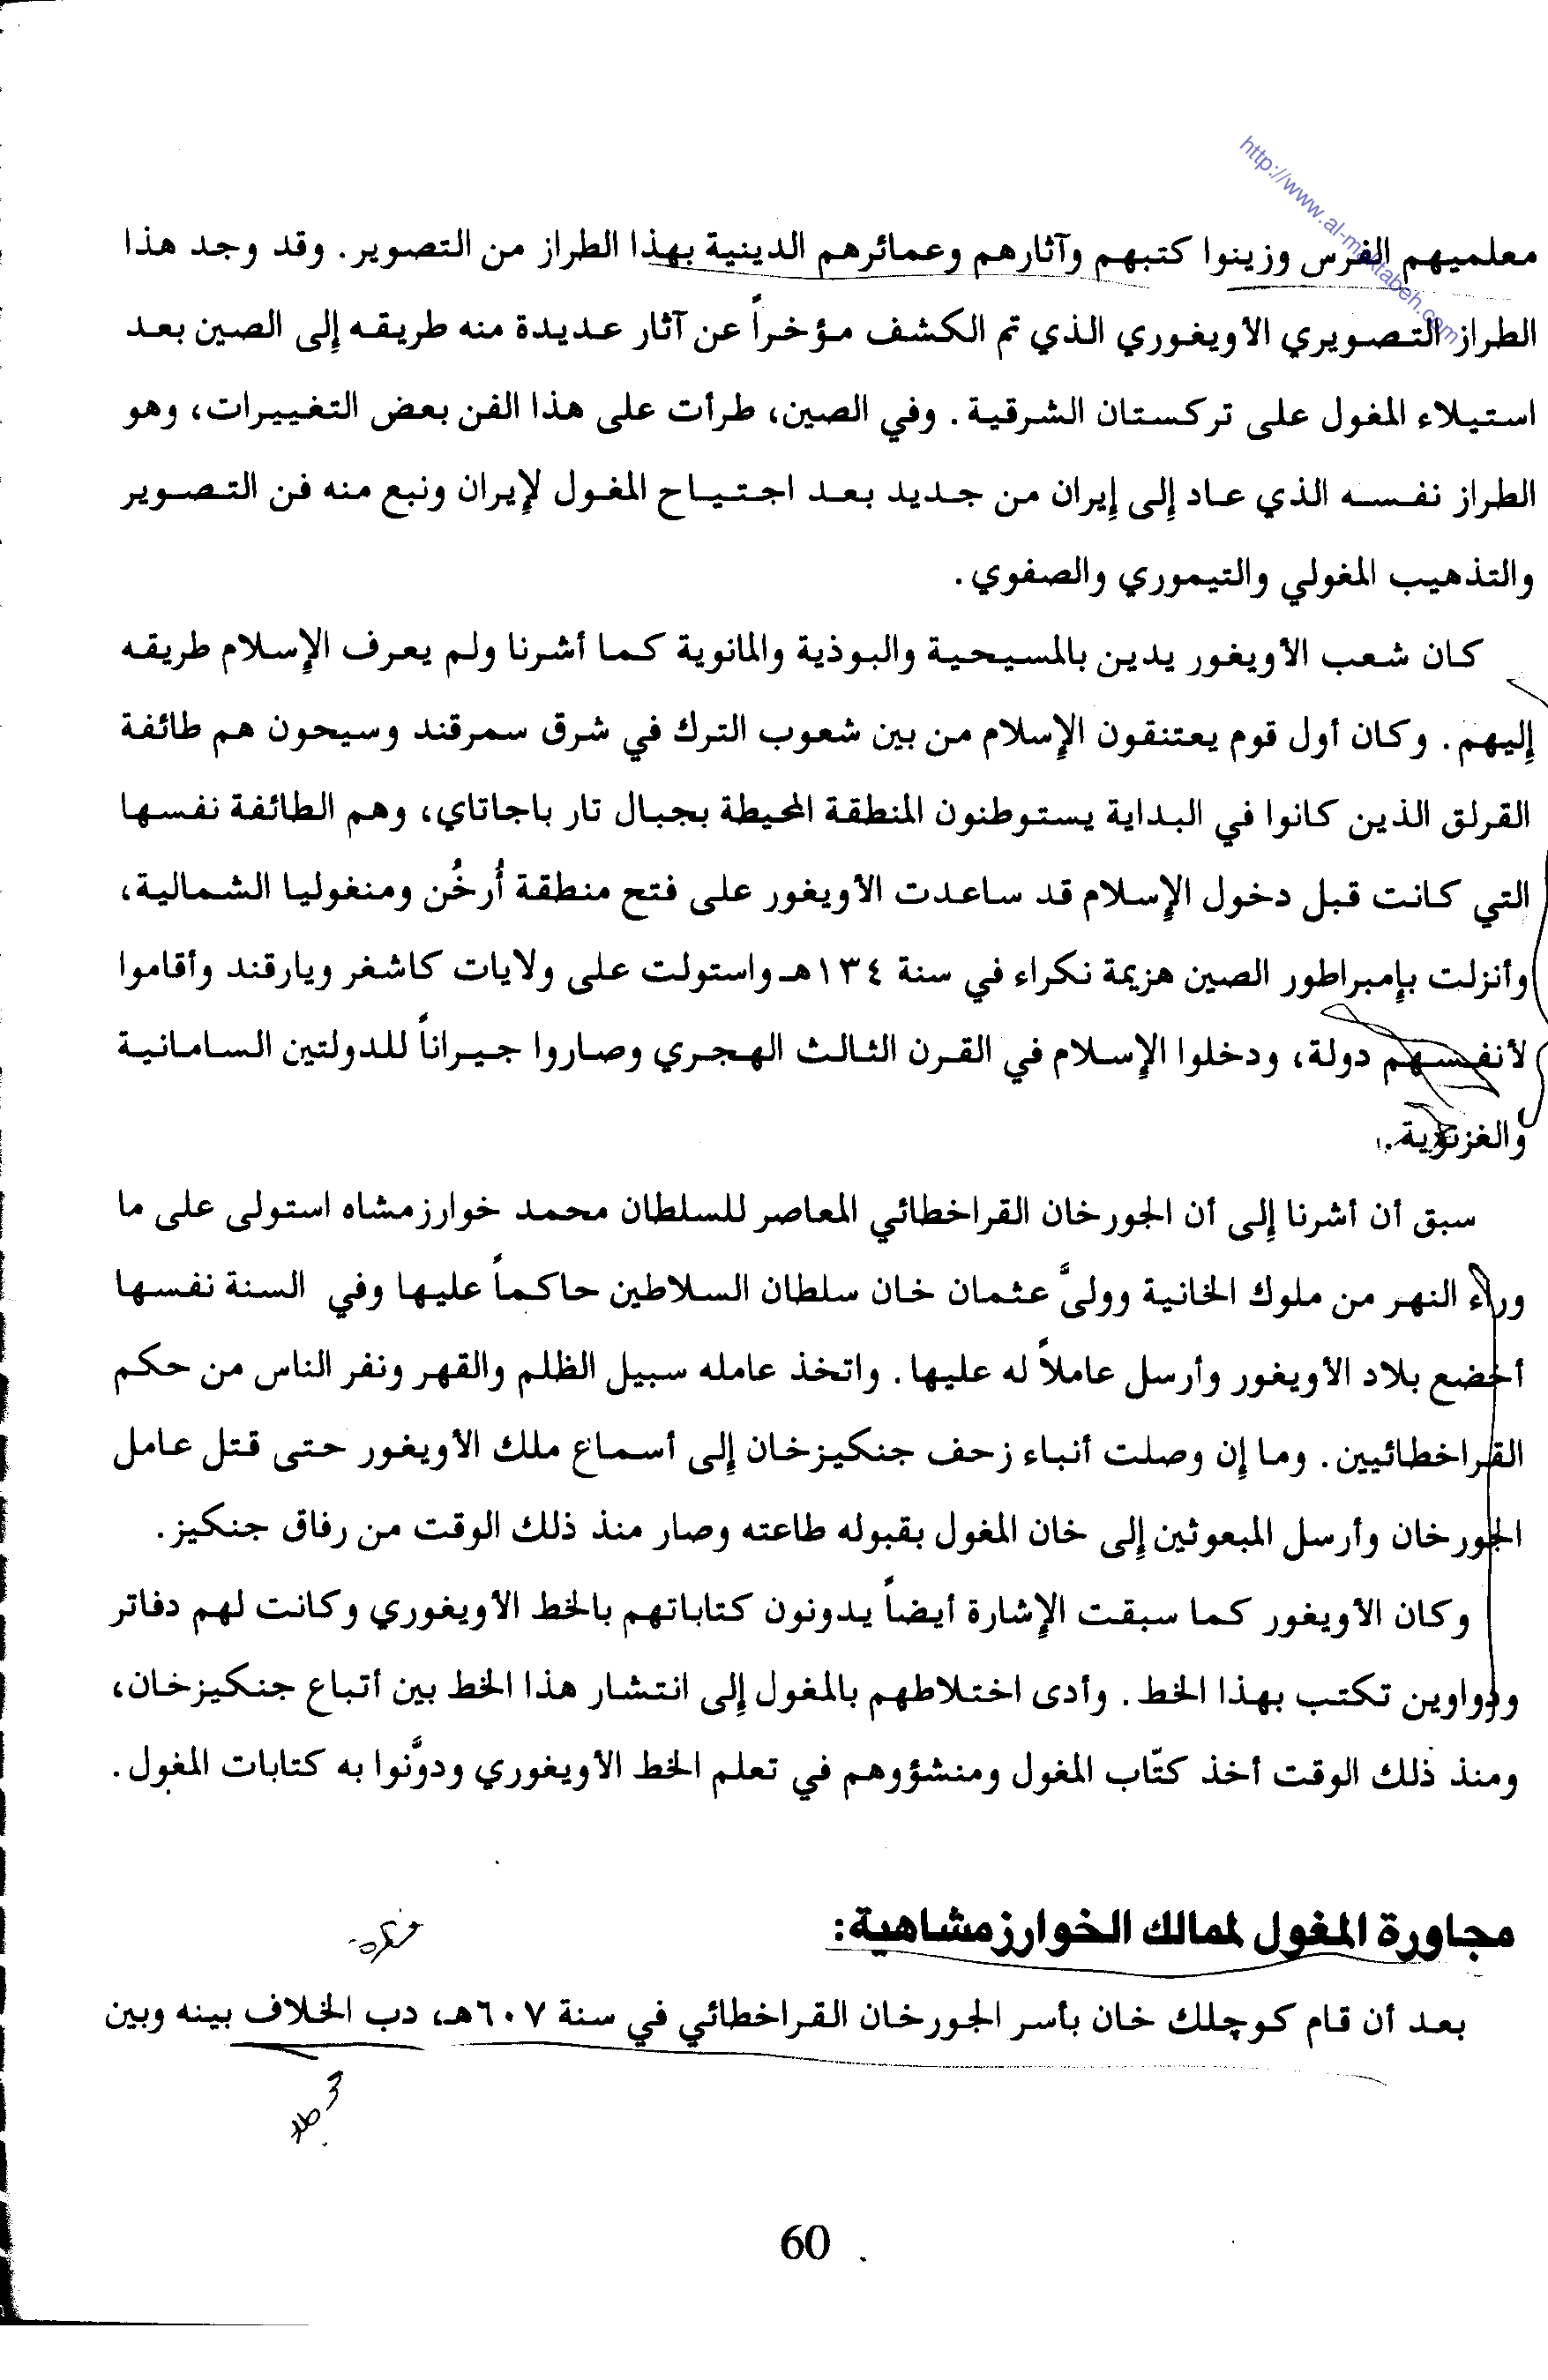 http://www.al-maktabeh.com
معلميهم الفرس وزينوا كتبهم وآثارهم وعمائرهم الدينية بهذا الطراز من التصوير. وقد وجد هذا
الطراز التصويري الأويغوري الذي تم الكشف مؤخراً عن آثار عديدة منه طريقه إلى الصين بعد
استيلاء المغول على تركستان الشرقية. وفي الصين، طرأت على هذا الفن بعض التغييرات، وهو
الطراز نفسه الذي عاد إلى إيران من جديد بعد اجتياح المغول لإيران ونبع منه فن التصوير
والتذهيب المغولي والتيموري والصفوي.
كان شعب الأويغور يدين بالمسيحية والبوذية والمانوية كما أشرنا ولم يعرف الإسلام طريقه
إليهم. وكان أول قوم يعتنقون الإسلام من بين شعوب الترك في شرق سمرقند وسيحون هم طائفة
القرلق الذين كانوا في البداية يستوطنون المنطقة المحيطة بجبال تار باجاتاي، وهم الطائفة نفسها
التي كانت قبل دخول الإسلام قد ساعدت الأويغور على فتح منطقة أُرخُن ومنغوليا الشمالية،
وأنزلت بإمبراطور الصين هزيمة نكراء في سنة ١٣٤هـ واستولت على ولايات كاشغر ويارقند وأقاموا
لأنفسهم دولة، ودخلوا الإسلام في القرن الثالث الهجري وصاروا جيراناً للدولتين السامانية
والغزنوية.
سبق أن أشرنا إلى أن الجورخان القراخطائي المعاصر للسلطان محمد خوارزمشاه استولى على ما
وراء النهر من ملوك الخانية وولىَّ عثمان خان سلطان السلاطين حاكماً عليها وفي السنة نفسها
أخضع بلاد الأويغور وأرسل عاملاً له عليها. واتخذ عامله سبيل الظلم والقهر ونفر الناس من حكم
القراخطائيين. وما إن وصلت أنباء زحف جنكيزخان إلى أسماع ملك الأويغور حتى قتل عامل
الجورخان وأرسل المبعوثين إلى خان المغول بقبوله طاعته وصار منذ ذلك الوقت من رفاق جنكيز.
وكان الأويغور كما سبقت الإشارة أيضاً يدونون كتاباتهم بالخط الأويغوري وكانت لهم دفاتر
ودواوين تكتب بهذا الخط. وأدى اختلاطهم بالمغول إلى انتشار هذا الخط بين أتباع جنكيزخان،
ومنذ ذلك الوقت أخذ كتّاب المغول ومنشؤوهم في تعلم الخط الأويغوري ودوَّنوا به كتابات المغول.
مجاورة المغول لممالك الخوارزمشاهية:
بعد أن قام كوچلك خان بأسر الجورخان القراخطائي في سنة ٦٠٧هـ، دب الخلاف بينه وبين
60